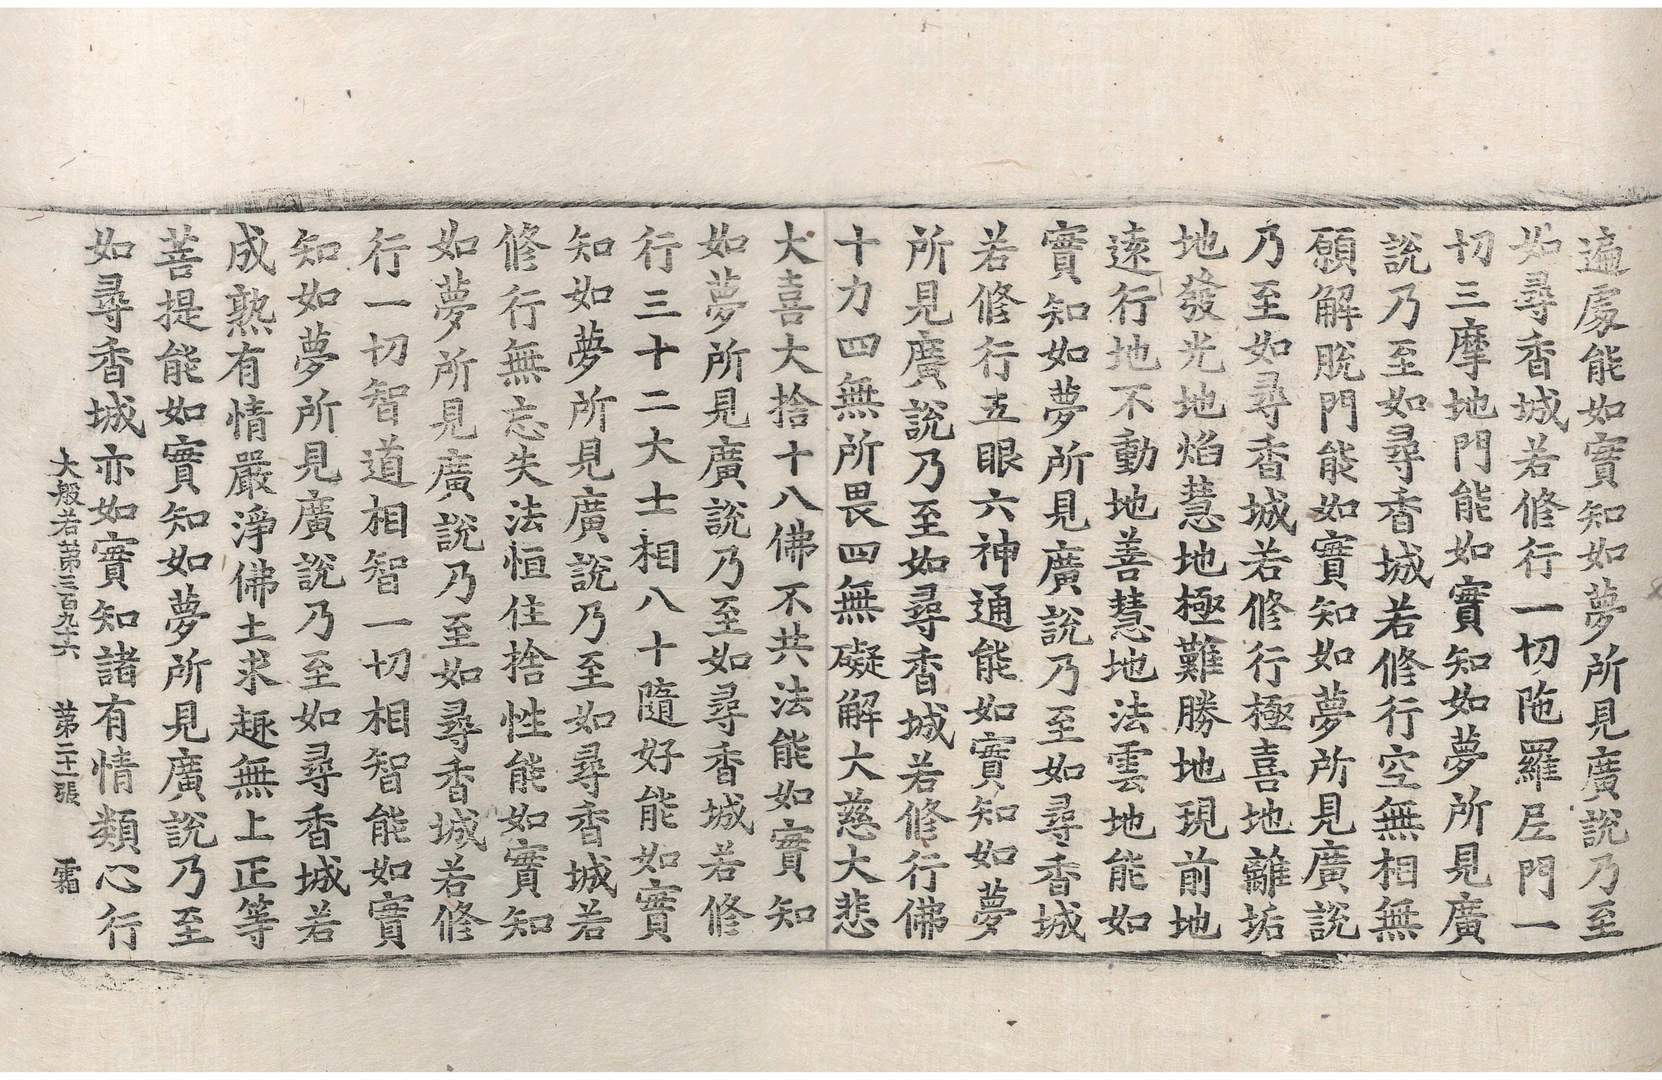 遍處能如實知如夢所見廣說乃至
如尋香城若修行一切陁羅尼門一
切三摩地門能如實知如夢所見廣
說乃至如尋香城若修行空無相無
願解脫門能如實知如夢所見廣說
乃至如尋香城若修行極喜地離垢
地發光地焰慧地極難勝地現前地
遠行地不動地善慧地法雲地能如
實知如夢所見廣說乃至如尋香城
若修行五眼六神通能如實知如夢
所見廣說乃至如尋香城若修行佛
十力四無所畏四無礙解大慈大悲
大喜大捨十八佛不共法能如實知
如夢所見廣說乃至如尋香城若修
行三十二大士相八十隨好能如實
知如夢所見廣說乃至如尋香城若
修行無忘失法恒住捨性能如實知
如夢所見廣說乃至如尋香城若修
行一切智道相智一切相智能如實
知如夢所見廣說乃至如尋香城若
成熟有情嚴淨佛土求趣無上正等
菩提能如實知如夢所見廣說乃至
如尋香城亦如實知諸有情類心行
大般若第三百九十六 第二十一張 霜